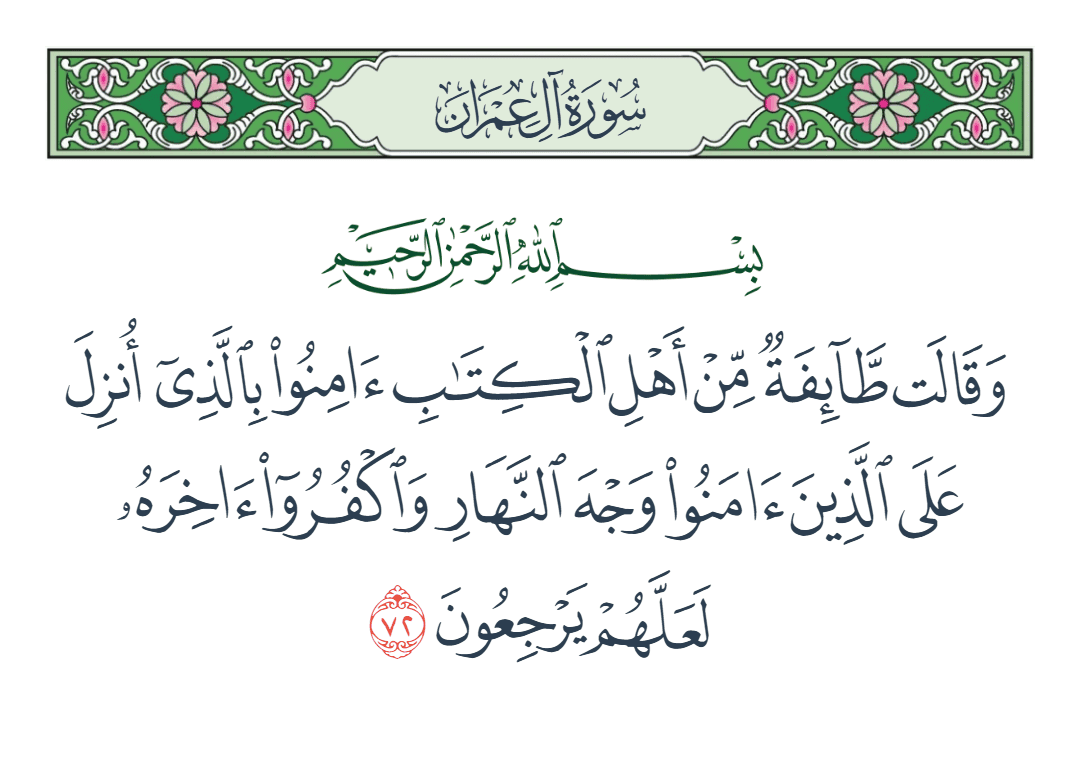 سُورَةُ آلِ عِمْرَانَ
بِسْمِ ٱللَّهِ ٱلرَّحْمَٰنِ ٱلرَّحِيمِ
وَقَالَت طَّآئِفَةٌ مِّنْ أَهْلِ ٱلْكِتَـٰبِ ءَامِنُوا۟ بِٱلَّذِىٓ أُنزِلَ
عَلَى ٱلَّذِينَ ءَامَنُوا۟ وَجْهَ ٱلنَّهَارِ وَٱكْفُرُوٓا۟ ءَاخِرَهُۥ
لَعَلَّهُمْ يَرْجِعُونَ ٧٢